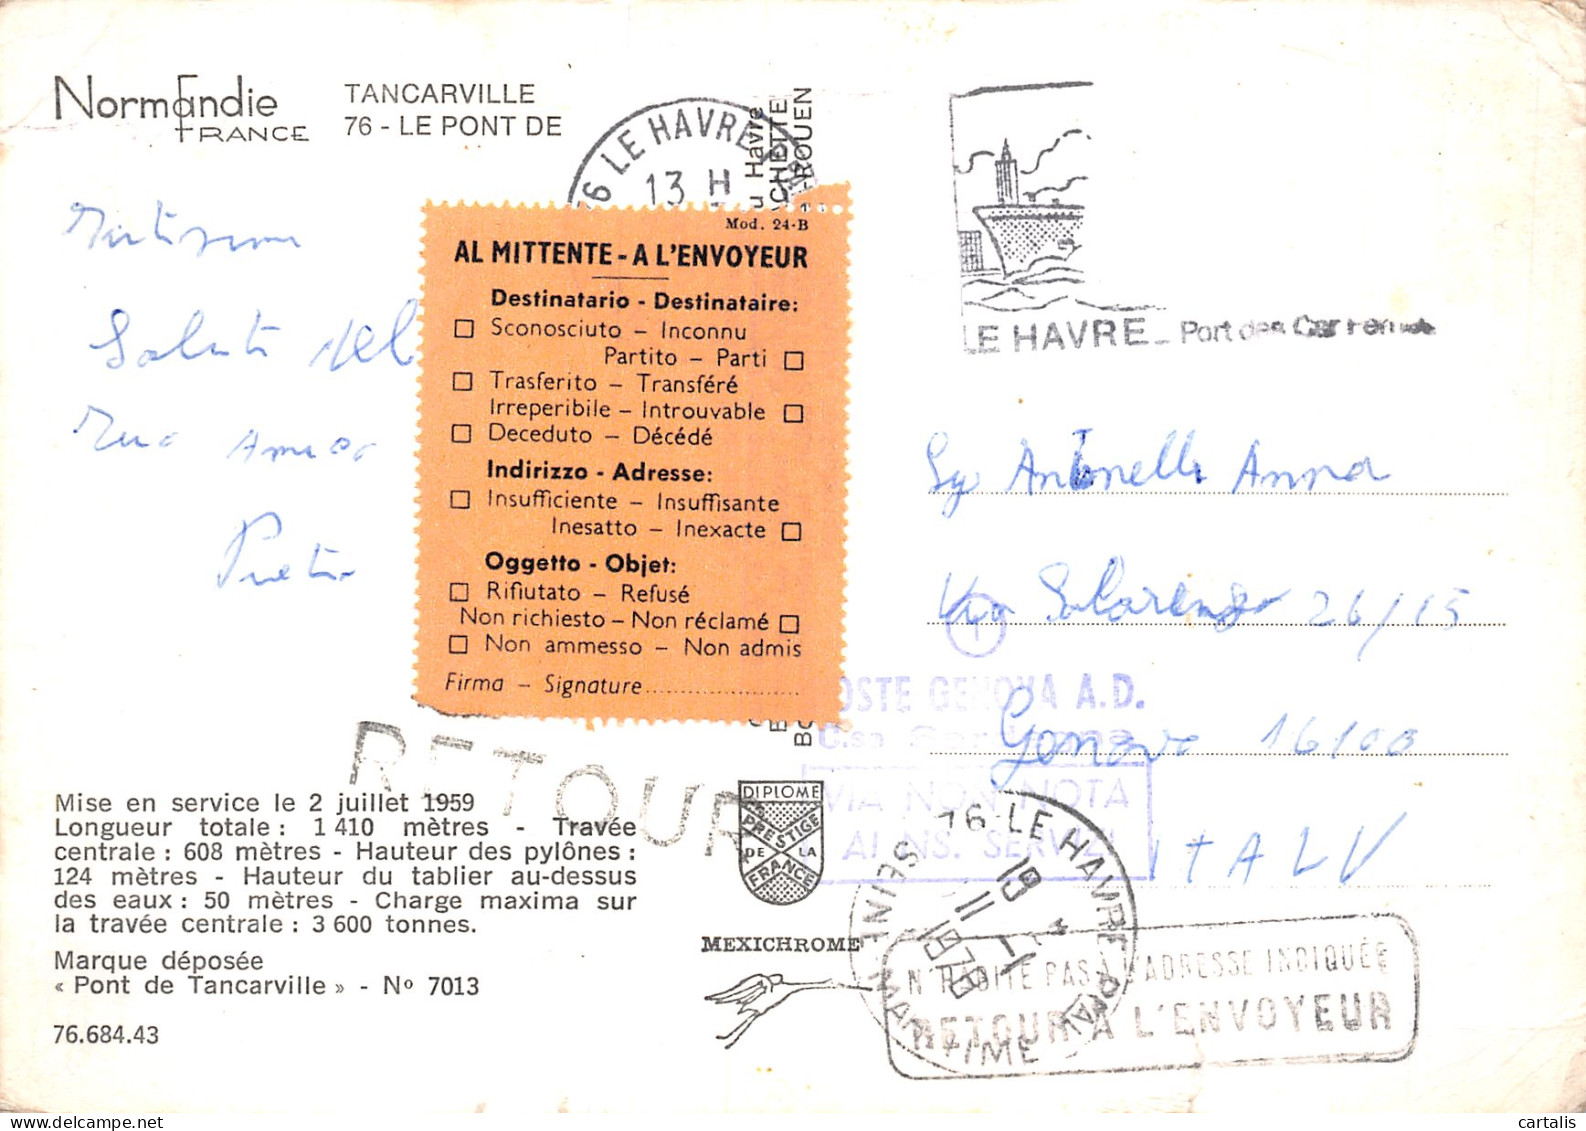 Normandie
FRANCE
TANCARVILLE
76 - LE PONT DE
76 LE HAVRE
13 H
u Havre
CHETTE
-ROUEN
LE HAVRE - Port des
Saluti del
Mod. 24-B
AL MITTENTE - A L'ENVOYEUR
Destinatario - Destinataire:
Sconosciuto - Inconnu
Partito - Parti
Trasferito - Transféré
Irreperibile - Introuvable
Deceduto - Décédé
Indirizzo - Adresse:
Insufficiente - Insuffisante
Inesatto - Inexacte
Oggetto - Objet:
Rifiutato - Refusé
Non richiesto - Non réclamé
Non ammesso - Non admis
Firma - Signature
Antonelli Anna
Via 26/15
16100
ITALY
OSTE GENOVA A.D.
VIA NON NOTA
AI NS. SERVIZI
RETOUR
Mise en service le 2 juillet 1959
Longueur totale : 1 410 mètres - Travée
centrale : 608 mètres - Hauteur des pylônes :
124 mètres - Hauteur du tablier au-dessus
des eaux : 50 mètres - Charge maxima sur
la travée centrale : 3 600 tonnes.
Marque déposée
« Pont de Tancarville » - Nº 7013
76.684.43
DIPLOME
PRESTIGE
DE LA
FRANCE
MEXICHROME
76 LE HAVRE PPAL
SEINE MARITIME
N'HABITE PAS A L'ADRESSE INDIQUÉE
RETOUR A L'ENVOYEUR